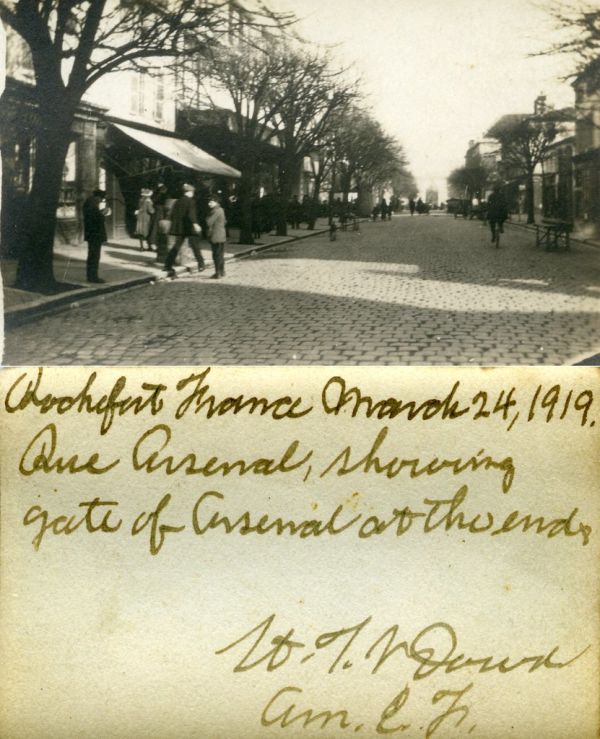 Rochefort France March 24, 1919.
Rue Arsenal, showing
gate of Arsenal at the end.
Am. E. F.